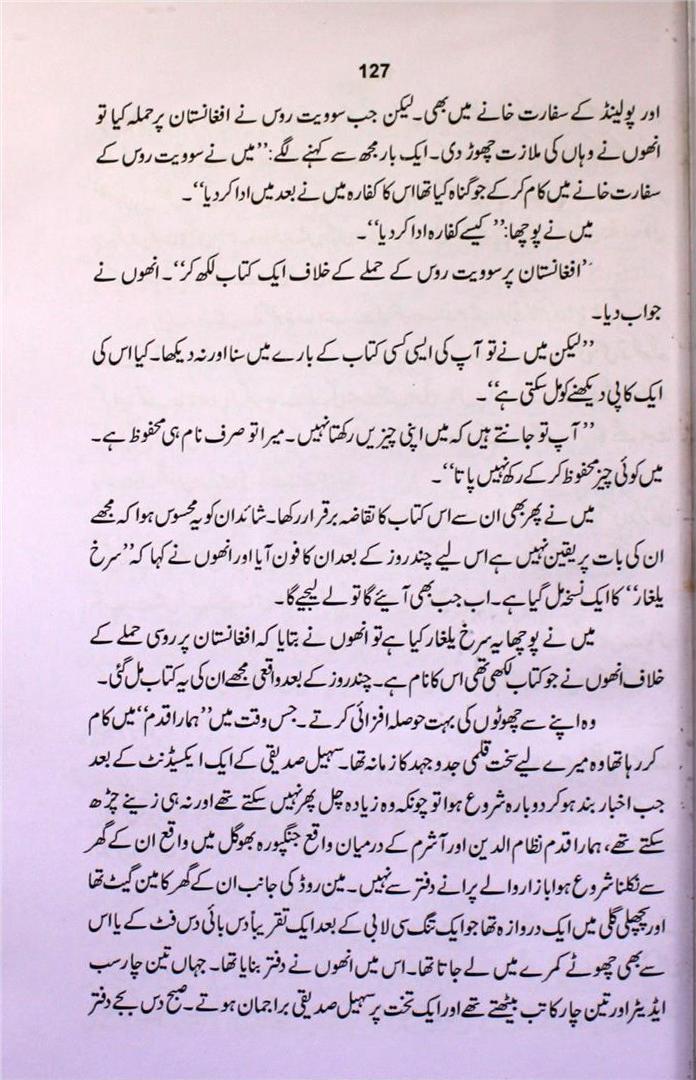 127
اور پولینڈ کے سفارت خانے میں بھی۔ لیکن جب سوویت روس نے افغانستان پر حملہ کیا تو
انھوں نے وہاں کی ملازت چھوڑ دی۔ ایک بار مجھ سے کہنے لگے: ’’میں نے سوویت روس کے
سفارت خانے میں کام کر کے جو گناہ کیا تھا اس کا کفارہ میں نے بعد میں ادا کر دیا‘‘۔
میں نے پوچھا: ’’کیسے کفارہ ادا کر دیا‘‘۔
’’افغانستان پر سوویت روس کے حملے کے خلاف ایک کتاب لکھ کر‘‘۔ انھوں نے
جواب دیا۔
’’لیکن میں نے تو آپ کی ایسی کسی کتاب کے بارے میں سنا اور نہ دیکھا۔ کیا اس کی
ایک کاپی دیکھنے کو مل سکتی ہے‘‘۔
’’آپ تو جانتے ہیں کہ میں اپنی چیزیں رکھتا نہیں۔ میرا تو صرف نام ہی محفوظ ہے۔
میں کوئی چیز محفوظ کر کے رکھ نہیں پاتا‘‘۔
میں نے پھر بھی ان سے اس کتاب کا تقاضہ برقرار رکھا۔ شائد ان کو یہ محسوس ہوا کہ مجھے
ان کی بات پر یقین نہیں ہے اس لیے چند روز کے بعد ان کا فون آیا اور انھوں نے کہا کہ ’’سرخ
یلغار‘‘ کا ایک نسخہ مل گیا ہے۔ اب جب بھی آیئے گا تو لے لیجیے گا۔
میں نے پوچھا یہ سرخ یلغار کیا ہے تو انھوں نے بتایا کہ افغانستان پر روسی حملے کے
خلاف انھوں نے جو کتاب لکھی تھی اس کا نام ہے۔ چند روز کے بعد واقعی مجھے ان کی یہ کتاب مل گئی۔
وہ اپنے سے چھوٹوں کی بہت حوصلہ افزائی کرتے۔ جس وقت میں ’’ہمارا قدم‘‘ میں کام
کر رہا تھا وہ میرے لیے سخت قلمی جدوجہد کا زمانہ تھا۔ سہیل صدیقی کے ایک ایکسیڈنٹ کے بعد
جب اخبار بند ہو کر دوبارہ شروع ہوا تو چونکہ وہ زیادہ چل پھر نہیں سکتے تھے اور نہ ہی زینے چڑھ
سکتے تھے، ہمارا قدم نظام الدین اور آشرم کے درمیان واقع جنگپورہ بھوگل میں واقع ان کے گھر
سے نکلنا شروع ہوا بازار والے پرانے دفتر سے نہیں۔ مین روڈ کی جانب ان کے گھر کا مین گیٹ تھا
اور پچھلی گلی میں ایک دروازہ تھا جو ایک تنگ سی لابی کے بعد ایک تقریباً دس بائی دس فٹ کے یا اس
سے بھی چھوٹے کمرے میں لے جاتا تھا۔ اس میں انھوں نے دفتر بنایا تھا۔ جہاں تین چار سب
ایڈیٹر اور تین چار کاتب بیٹھتے تھے اور ایک تخت پر سہیل صدیقی براجمان ہوتے۔ صبح دس بجے دفتر